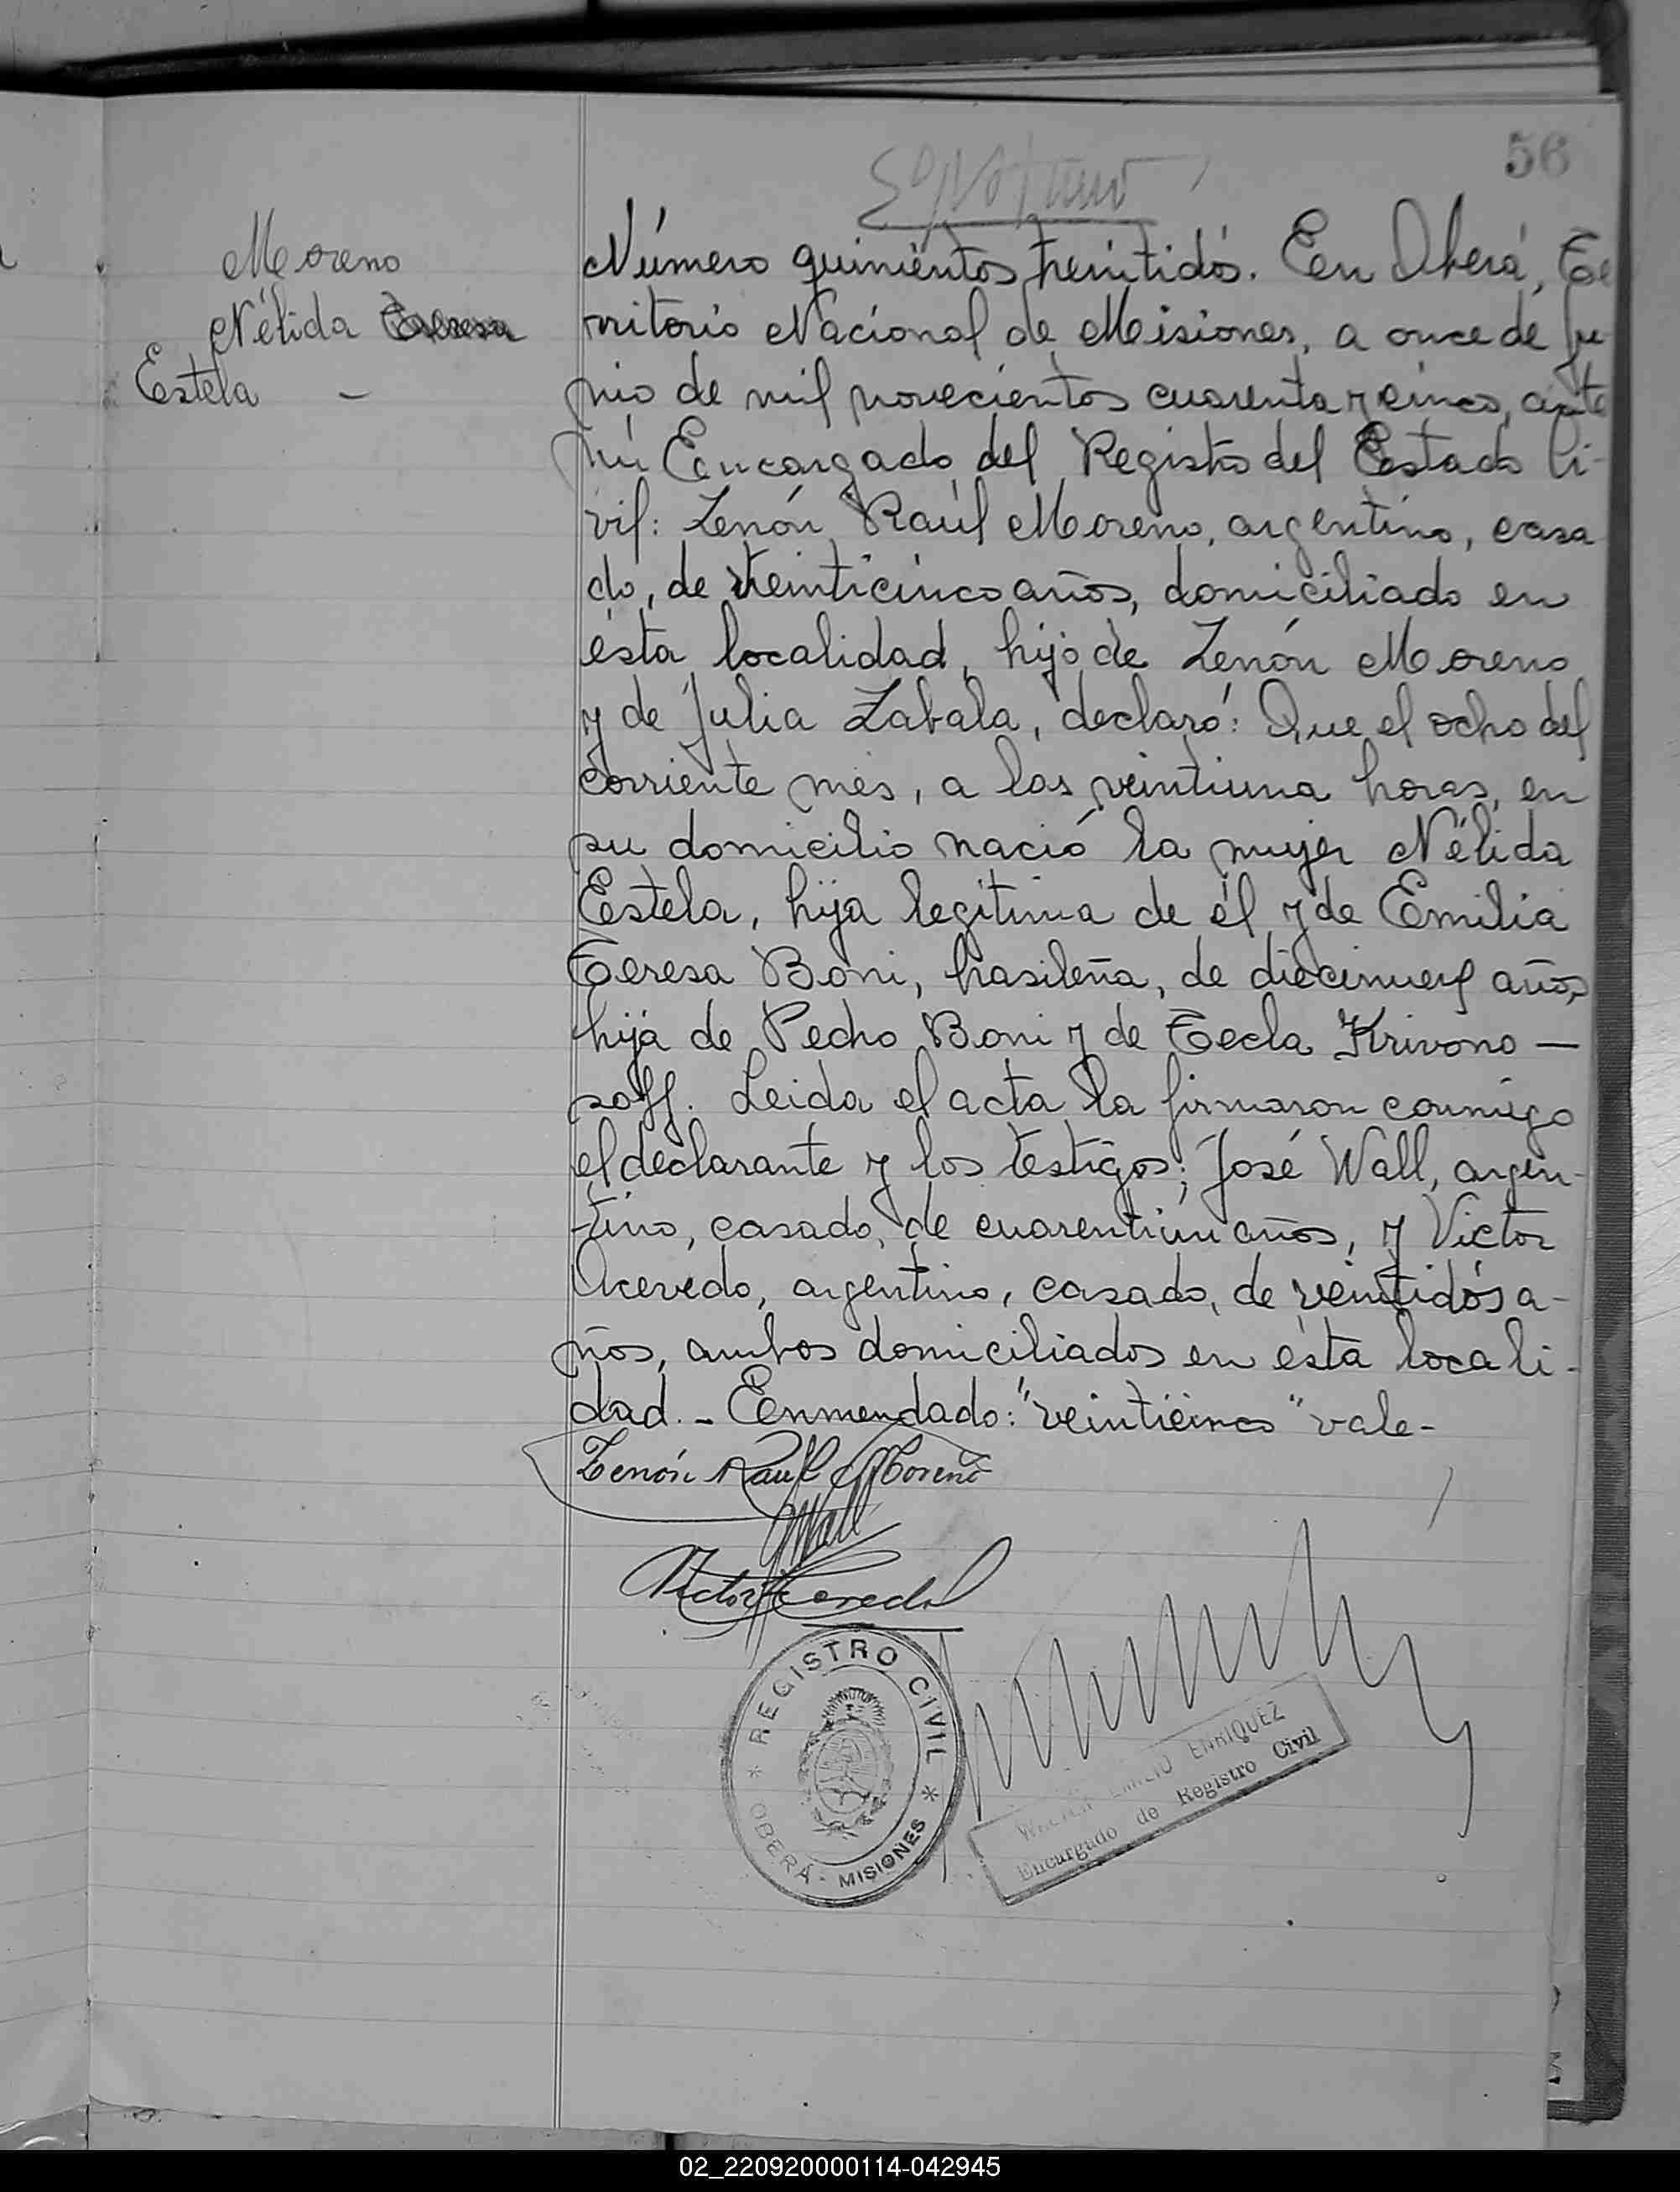 56
Moreno
Nélida
Estela -
Número quinientos treintidós. En Oberá, Te
rritorio Nacional de Misiones, a once de ju-
nio de mil novecientos cuarenta y cinco, ante
mí Encargado del Registro del Estado Ci-
vil: Zenón Raúl Moreno, argentino, casa
do, de veinticinco años, domiciliado en
ésta localidad, hijo de Zenón Moreno
y de Julia Zabala, declaró: Que el ocho del
corriente mes, a las veintiuna horas, en
su domicilio nació la mujer Nélida
Estela, hija legítima de él y de Emilia
Teresa Boni, brasileña, de diecinueve años,
hija de Pedro Boni y de Tecla Krivono —
soff. Leida el acta la firmaron conmigo
el declarante y los testigos; José Wall, argen-
-tino, casado, de cuarentiún años, y Victor
Acevedo, argentino, casado, de veintidós a-
ños, ambos domiciliados en ésta locali-
dad. - Enmendado: "veinticinco" vale-
Zenón Raúl Moreno
JWall
Victor Acevedo
REGISTRO CIVIL
OBERÁ - MISIONES
EMILIO ENRIQUEZ
Encargado de Registro Civil
02_220920000114-042945